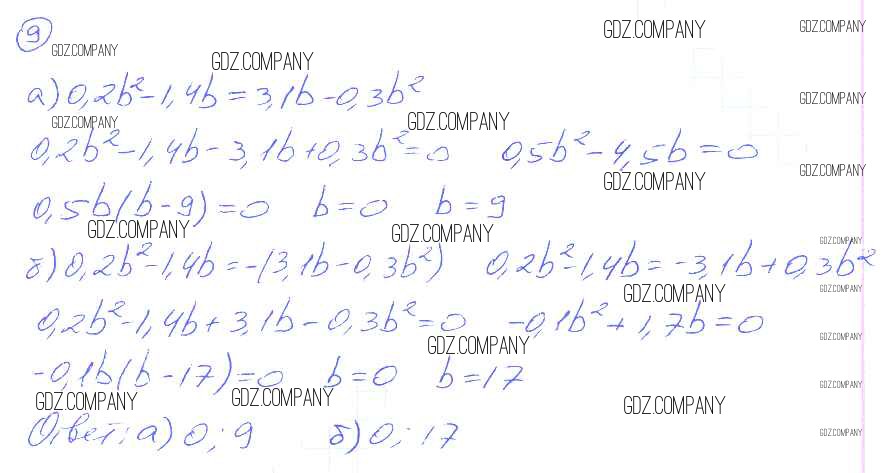 9
GDZ.COMPANY GDZ.COMPANY GDZ.COMPANY GDZ.COMPANY
а) 0,2b²-1,4b=3,1b-0,3b²
GDZ.COMPANY
GDZ.COMPANY GDZ.COMPANY
0,2b²-1,4b-3,1b+0,3b²=0 0,5b²-4,5b=0
GDZ.COMPANY GDZ.COMPANY
0,5b(b-9)=0 b=0 b=9
GDZ.COMPANY GDZ.COMPANY GDZ.COMPANY
б) 0,2b²-1,4b=-(3,1b-0,3b²) 0,2b²-1,4b=-3,1b+0,3b²
GDZ.COMPANY GDZ.COMPANY
0,2b²-1,4b+3,1b-0,3b²=0 -0,1b²+1,7b=0
GDZ.COMPANY GDZ.COMPANY
-0,1b(b-17)=0 b=0 b=17
GDZ.COMPANY
GDZ.COMPANY GDZ.COMPANY GDZ.COMPANY
Ответ: а) 0; 9 б) 0; 17
GDZ.COMPANY